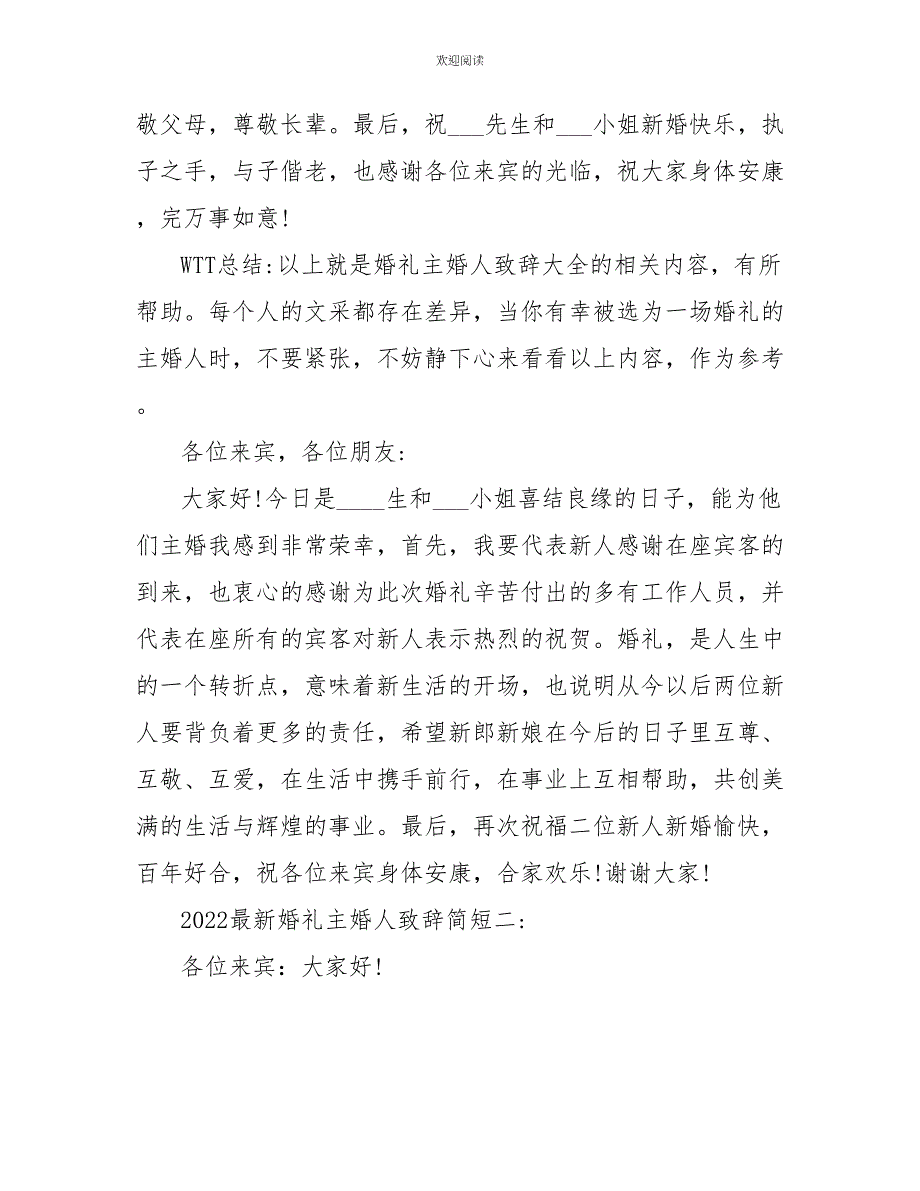 欢迎阅读
敬父母，尊敬长辈。最后，祝___先生和___小姐新婚快乐，执
子之手，与子偕老，也感谢各位来宾的光临，祝大家身体安康
，完万事如意!
WTT总结:以上就是婚礼主婚人致辞大全的相关内容，有所
帮助。每个人的文采都存在差异，当你有幸被选为一场婚礼的
主婚人时，不要紧张，不妨静下心来看看以上内容，作为参考
。
各位来宾，各位朋友:
大家好!今日是____生和___小姐喜结良缘的日子，能为他
们主婚我感到非常荣幸，首先，我要代表新人感谢在座宾客的
到来，也衷心的感谢为此次婚礼辛苦付出的多有工作人员，并
代表在座所有的宾客对新人表示热烈的祝贺。婚礼，是人生中
的一个转折点，意味着新生活的开场，也说明从今以后两位新
人要背负着更多的责任，希望新郎新娘在今后的日子里互尊、
互敬、互爱，在生活中携手前行，在事业上互相帮助，共创美
满的生活与辉煌的事业。最后，再次祝福二位新人新婚愉快，
百年好合，祝各位来宾身体安康，合家欢乐!谢谢大家!
2022最新婚礼主婚人致辞简短二:
各位来宾：大家好!